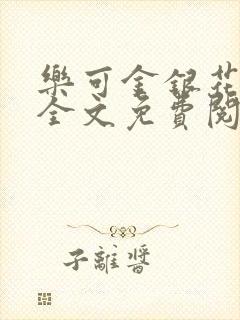 樂可金銀花
全文免費閱
子離醬